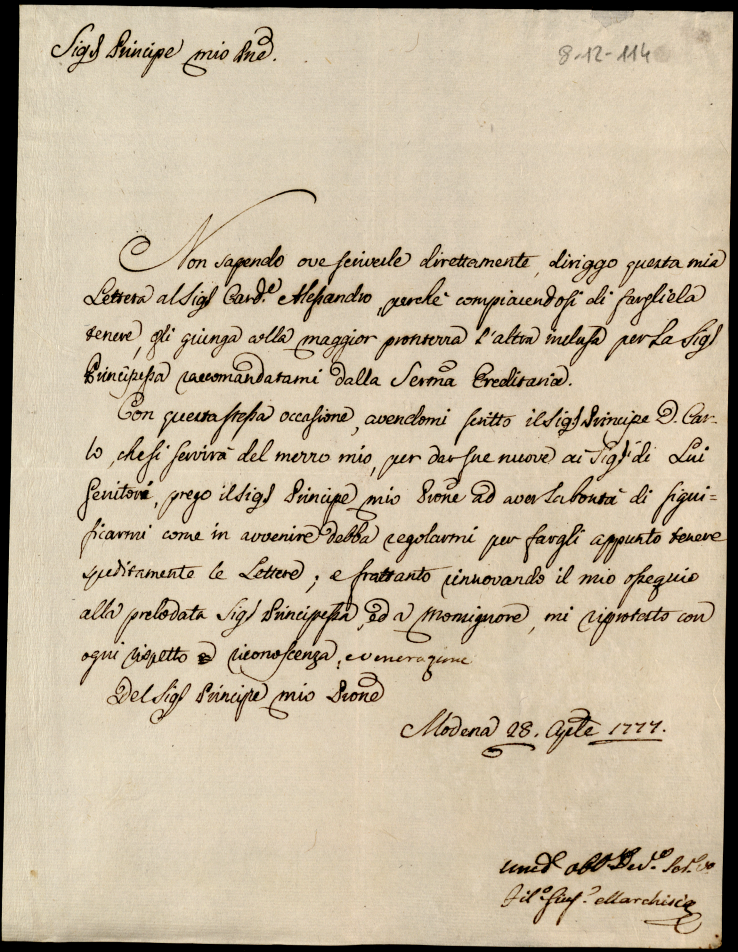 Sigr Principe mio Pne.
8-12-114
Non sapendo ove scriverle direttamente, diriggo questa mia
Lettera al Sigr Card.e Alessandro, perchè compiacendosi di fargliela
tenere, gli giunga colla maggior prontezza l'altra inclusa per La Sigr
Principessa raccomandatami dalla Serma Ereditaria.
Con questa stessa occasione, avendomi scritto il Sigr Principe D. Car-
lo, che si servirà del mezzo mio, per dar sue nuove ai Sigri di Lui
Genitori, prego il Sigr Principe mio Prone ad aver la bontà di signi=
ficarmi come in avvenire debba regolarmi per fargli appunto tenere
speditamente le Lettere; e frattanto rinnovando il mio ossequio
alla prelodata Sigr Principessa, ed a Monsignore, mi riprotesto con
ogni rispetto e riconoscenza, e venerazione
Del Sigr Principe mio Prone
Modena 28. Aprle 1777.
Dev.o Ser.
Fil.o Gius.e Marchisio